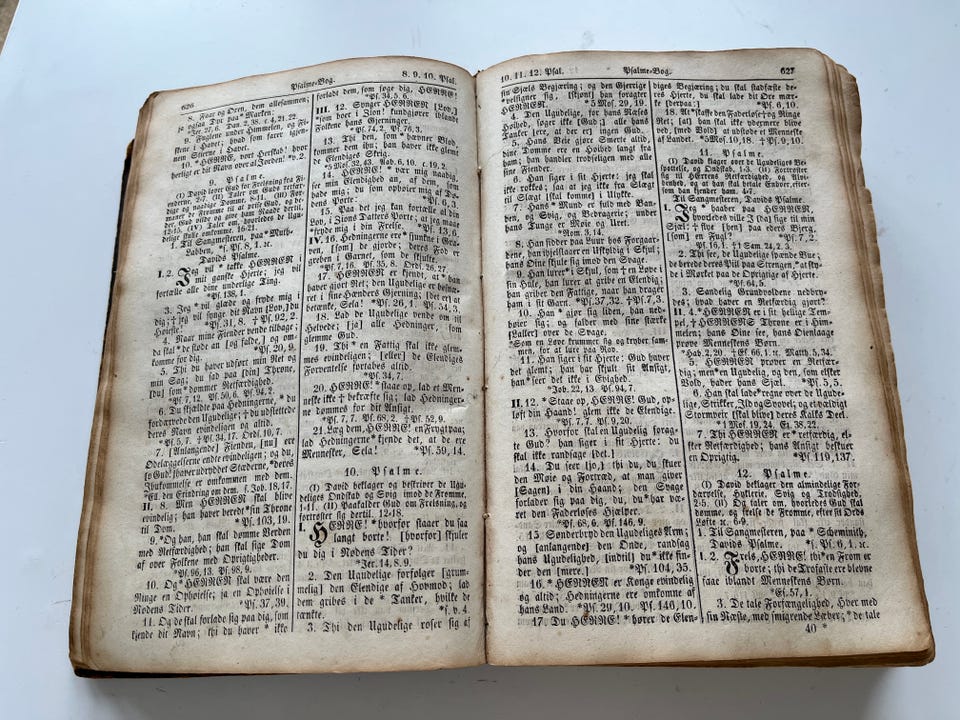 626
Psalme-Bog.
8. 9. 10. Psal.
8. Faar og Øxen, dem allesammen;
ja ogsaa Dyr paa *Marken;
*Jer. 27, 6. Dan. 2, 38. c. 4, 21. 22
9. Fuglene under Himmelen, og Fi-
skene i Havet; hvad som farer igjen-
nem Stierne i Havet.
10. *HERRE, vort Herskab! hvor
herligt er dit Navn over al Jorden! *v. 2.
9. Psalme.
(I) David lover Gud for Frelsning fra Fi-
enderne,
Til Sangmesteren, paa *Muth-
Labben, *f. Ps. 8, 1. ꝛc.
Davids Psalme.
I. 2. Jeg vil *takke HERREN i
mit ganske Hjerte; jeg vil
fortælle alle dine underlige Ting.
*Ps. 138, 1.
3. Jeg *vil glæde og fryde mig i
dig; † jeg vil synge dit Navn [Lov,] du
Høieste! *Ps. 31, 8. † Ps. 92, 2.
4. Naar mine Fiender vende tilbage;
da skal *de støde an [og falde,] og om-
komme for dig. *Ps. 20, 9.
5. Thi du haver udført min Ret og
min Sag; du sad paa [din] Throne,
[du] som *dømmer Retfærdighed.
*Ps. 7, 12. Ps. 50, 6. Ps. 94, 2.
6. Du skjældte paa Hedningerne, *du
fordærvede den Ugudelige; † du udslettede
deres Navn evindelig og altid.
*Ps. 5, 7. † Ps. 34, 17. Ordi. 10, 7.
7. [Anlangende] Fienden, [nu] ere
Ødelæggelserne endte evindeligen; og du,
[o Gud! haver] udryddet Stæderne, *deres
Ihukommelse er omkommen med dem.
*El. den Erindring om dem. f. Job. 18, 17.
II. 8. Men HERREN skal blive
evindelig; han haver beredt *sin Throne
til Dom. *Ps. 103, 19.
9. *Og han, han skal dømme Verden
med Retfærdighed; han skal sige Dom
af over Folkene med Oprigtigheder.
*Ps. 96, 13. Ps. 98, 9.
10. Og *HERREN skal være den
Ringe en Ophøielse; ja en Ophøielse i
Nødens Tider. *Ps. 37, 39.
11. Og de skal forlade sig paa dig, som
kjende dit Navn; thi du haver * ikke
forladt dem, som søge dig, HERRE!
*Ps. 34, 5. 6.
III. 12. Synger HERREN [Lov,]
*som boer i Zion! kundgjører iblandt
Folkene hans Gjerninger.
*Ps. 74, 2. Ps. 76, 3.
13. Thi den, som *hævner Blod,
kommer dem ihu; han haver ikke glemt
de Elendiges Skrig.
*5 Mos. 32, 43. Aab. 6, 10. c. 19, 2.
14. HERRE! *vær mig naadig,
see min Elendighed an, af dem, som
hade mig; du som ophøier mig af Dø-
dens Porte. *Ps. 6, 3.
15. Paa det jeg kan fortælle al din
Lov, i Zions Datters Porte; at jeg maae
*fryde mig i din Frelse. *Ps. 13, 6.
IV. 16. Hedningerne ere *sjunkne i Gra-
ven, [som] de gjorde; deres Fod er
greben i Garnet, som de skjulte.
*Ps. 7, 16. Ps. 35, 8. Ordi. 26, 27.
17. HERREN er kjendt, at han
haver gjort Ret; den Ugudelige er besnæ-
ret i sine Hænders Gjerning; [det er] at
betænke, Sela! *Ps. 26, 1. Ps. 54, 3.
18. Lad de Ugudelige vende om til
Helvede; [ja] alle Hedninger, som
glemme Gud.
19. Thi *en Fattig skal ikke glem-
mes evindeligen; [eller] de Elendiges
Forventelse fortabes altid.
*Ps. 34, 7.
20. HERRE! *staae op, lad et Men-
neske ikke † bekræfte sig; lad Hednin-
gerne dømmes for dit Ansigt.
*Ps. 7, 7. Ps. 68, 2. † Ps. 52, 9.
21. Læg dem, HERRE! en Frygt paa;
lad Hedningerne *kjende det, at de ere
Mennesker, Sela! *Ps. 59, 14.
10. Psalme.
(I) David beklager og beskriver de Ugu-
deliges Ondskab og Svig imod de Fromme,
1-11. (II) Paakalder Gud om Frelsning, og
fortrøster sig dertil. 12-18.
I. HERRE! *hvorfor staaer du saa
langt borte! [hvorfor] skjuler
du dig i Nødens Tider?
*Jer. 14, 8. 9.
2. Den Ugudelige forfølger [grum-
melig] den Elendige af Hovmod; lad
dem gribes i de * Tanker, hvilke de
tænkte. *f. v. 4.
3. Thi den Ugudelige roser sig af
10. 11. 12. Psal.
Psalme-Bog.
627
sin Sjæls Begjæring; og den Gjerrige
*velsigner sig, [skjønt] han foragter
HERREN. *5 Mos. 29, 19.
4. Den Ugudelige, for hans Næses
Høihed, søger ikke [Gud;] alle hans
Tanker [ere, at der er] ingen Gud.
5. Hans Veie gjøre Smerte altid,
dine Domme ere en Høihed langt fra
ham; han handler trodseligen med alle
sine Fiender.
6. Han siger i sit Hjerte: jeg skal
ikke rokkes; saa at jeg ikke fra Slægt
til Slægt [skal komme] i Ulykke.
7. Hans *Mund er fuld med Ban-
den, og Svig, og Bedragerie; under
hans Tunge er Møie og Uret.
*Rom. 3, 14.
8. Han sidder paa Luur hos Forgaar-
dene, han ihjelslaaer en Uskyldig i Skjul;
hans Øine skjule sig imod den Svage.
9. Han lurer *i Skjul, som † en Løve i
sin Hule, han lurer at gribe en Elendig;
han griber den Fattige, naar han drager
ham i sit Garn. *Ps. 37, 32. † Ps. 7, 3.
10. Han *gjør sig liden, han ned-
bøier sig; og falder med sine stærke
[Lemmer] over de Svage.
*Som en Løve krummer sig og kryber sammen,
for at lure paa Rov.
11. Han siger i sit Hjerte: Gud haver
det glemt; han har skjult sit Ansigt,
han *seer det ikke i Evighed.
*Job. 22, 13. Ps. 94, 7.
II. 12. *Staae op, HERRE! Gud, op-
løft din Haand! glem ikke de Elendige.
*Ps. 7, 7. Ps. 9, 20.
13. Hvorfor skal en Ugudelig forag-
te Gud? han siger i sit Hjerte: du skal
ikke randsage [det.]
14. Du seer [jo,] thi du, du skuer
den Møie og Fortræd, at man giver
[Sagen] i din Haand; den Svage
forlader sig paa dig, du, du *har væ-
ret den Faderløses Hjælper.
*Ps. 68, 6. Ps. 146, 9.
15. Sønderbryd den Ugudeliges Arm;
og [anlangende] den Onde, randsag
hans Ugudelighed, [indtil] du *ikke fin-
der den [mere.] *Ps. 104, 35.
16. *HERREN er Konge evindelig
og altid; Hedningerne ere omkomne af
hans Land. *Ps. 29, 10. Ps. 146, 10.
17. Du HERRE! *hører de Elen-
diges Begjæring; du skal stadfæste de-
res Hjerte, du skal lade dit Øre mær-
ke [derpaa;] *Ps. 6, 10.
18. At *skaffe den Faderløse † og Ringe
Ret; [at] han skal ikke ydermere blive
ved, [med Vold] at udstøde et Menneske
af Landet. *5 Mos. 10, 18. † Ps. 9, 10.
11. Psalme.
(I) David klager over de Ugudeliges Be-
spottelse, og Ondskab, 1-3. (II) Fortrøster
sig til HErrens Retfærdighed, og Alvi-
denhed, og at han skal betale Enhver, efter-
som han haver fortjent. 4-7.
Til Sangmesteren, Davids Psalme.
I. Jeg *haaber paa HERREN,
hvorledes ville I [da] sige til min
Sjæl: † flye [hen] paa eders Bjerg,
[som] en Fugl? *Ps. 7, 2.
Ps. 16, 1. † 1 Sam. 24, 2. 3.
2. Thi see, de Ugudelige spænde Bue;
de berede deres Piil paa Strengen, *at skyde
i Mørket paa de Oprigtige af Hjerte.
*Ps. 64, 5.
3. Sandelig Grundvoldene nedbry-
des; hvad haver en Retfærdig gjort?
II. 4. *HERREN er i sit hellige Tem-
pel, † HERRENS Throne er i Him-
melen; hans Øine see, hans Øienlaage
prøve Menneskens Børn.
*Hab. 2, 20. † Es. 66, 1. ꝛc. Matth. 5, 34.
5. HERREN prøver en Retfær-
dig; men *en Ugudelig, og den, som elsker
Vold, hader hans Sjæl. *Ps. 5, 5.
6. Han skal lade *regne over de Ugude-
lige, Strikker, Ild og Svovel; og et vældigt
Stormveir [skal blive] deres Kalks Deel.
*1 Mos. 19, 24. Ez. 38, 22.
7. Thi HERREN er *retfærdig, el-
sker Retfærdighed; hans Ansigt beskuer
en Oprigtig. *Ps. 119, 137.
12. Psalme.
(I) David beklager den almindelige For-
dærvelse, Hyklerie, Svig og Trodsighed,
2-5. (II) Og taler om, hvorledes Gud skal
dømme, og frelse de Fromme, efter sit Ords
Løfte ꝛc. 6-9.
1. Til Sangmesteren, paa *Scheminith,
Davids Psalme. *f. Ps. 6, 1. ꝛc.
I. 2. Frels, HERRE! thi *en From er
borte; thi de Trofaste ere blevne
faae iblandt Menneskens Børn.
*Es. 57, 1.
3. De tale Forfængelighed, Hver med
sin Næste, med smigrende Læber; *de tale
40 *